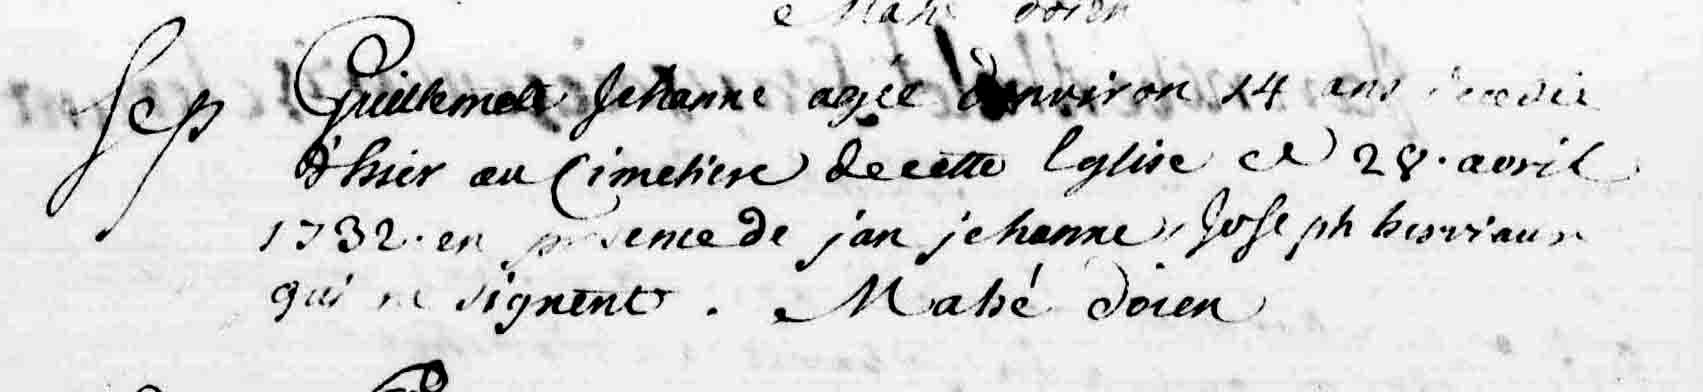 Mahé doien
Sep Guillemete Jehanne agée denviron 14 ans decedée
d'hier au Cimetiere de cette Eglise ce 28. avril
1732. en presence de jan jehanne, Joseph
qui ne signent. Mahé doien